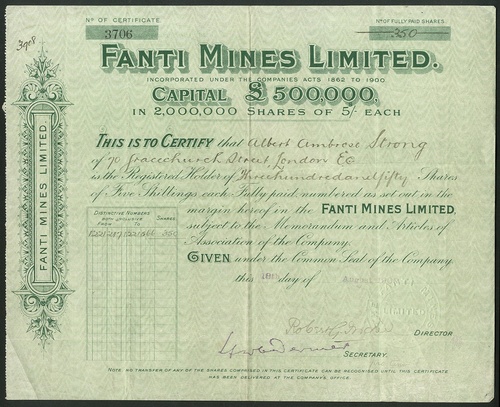 No OF CERTIFICATE
3706
No OF FULLY PAID SHARES
350
3908
FANTI MINES LIMITED.
INCORPORATED UNDER THE COMPANIES ACTS 1862 TO 1900
CAPITAL £500,000,
IN 2,000,000 SHARES OF 5/- EACH
THIS IS TO CERTIFY that Albert Ambrose Strong
of 70 Gracechurch Street London EC
is the Registered Holder of Three hundred and fifty Shares
of Five Shillings each Fully paid numbered as set out in the
margin hereof in the FANTI MINES LIMITED,
subject to the Memorandum and Articles of
Association of the Company.
GIVEN under the Common Seal of the Company
this day of
DISTINCTIVE NUMBERS
BOTH INCLUSIVE
FROM TO
SHARES
350
FANTI MINES LIMITED.
DIRECTOR
SECRETARY
NOTE. NO TRANSFER OF ANY OF THE SHARES COMPRISED IN THIS CERTIFICATE CAN BE RECOGNISED UNTIL THIS CERTIFICATE
HAS BEEN DELIVERED AT THE COMPANY'S OFFICE.